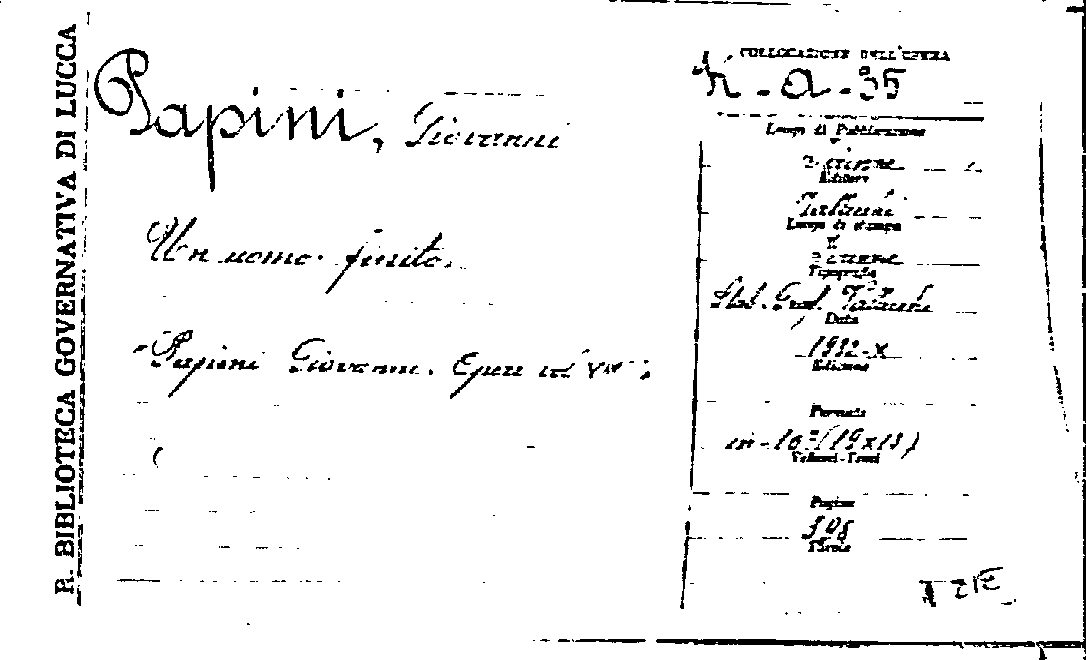 R. BIBLIOTECA GOVERNATIVA DI LUCCA
Papini, Giovanni
Un uomo finito.
"Papini Giovanni. Opere
COLLOCAZIONE DELL'OPERA
a - 35
Luogo di Pubblicazione
Firenze
Editore
Vallecchi
Luogo di stampa
Firenze
Tipografia
Stab. Graf. Vallecchi
Data
1932-X
Edizione
Formato
in-16° (19x13)
Volumi-Tomi
Pagine
308
Tavole